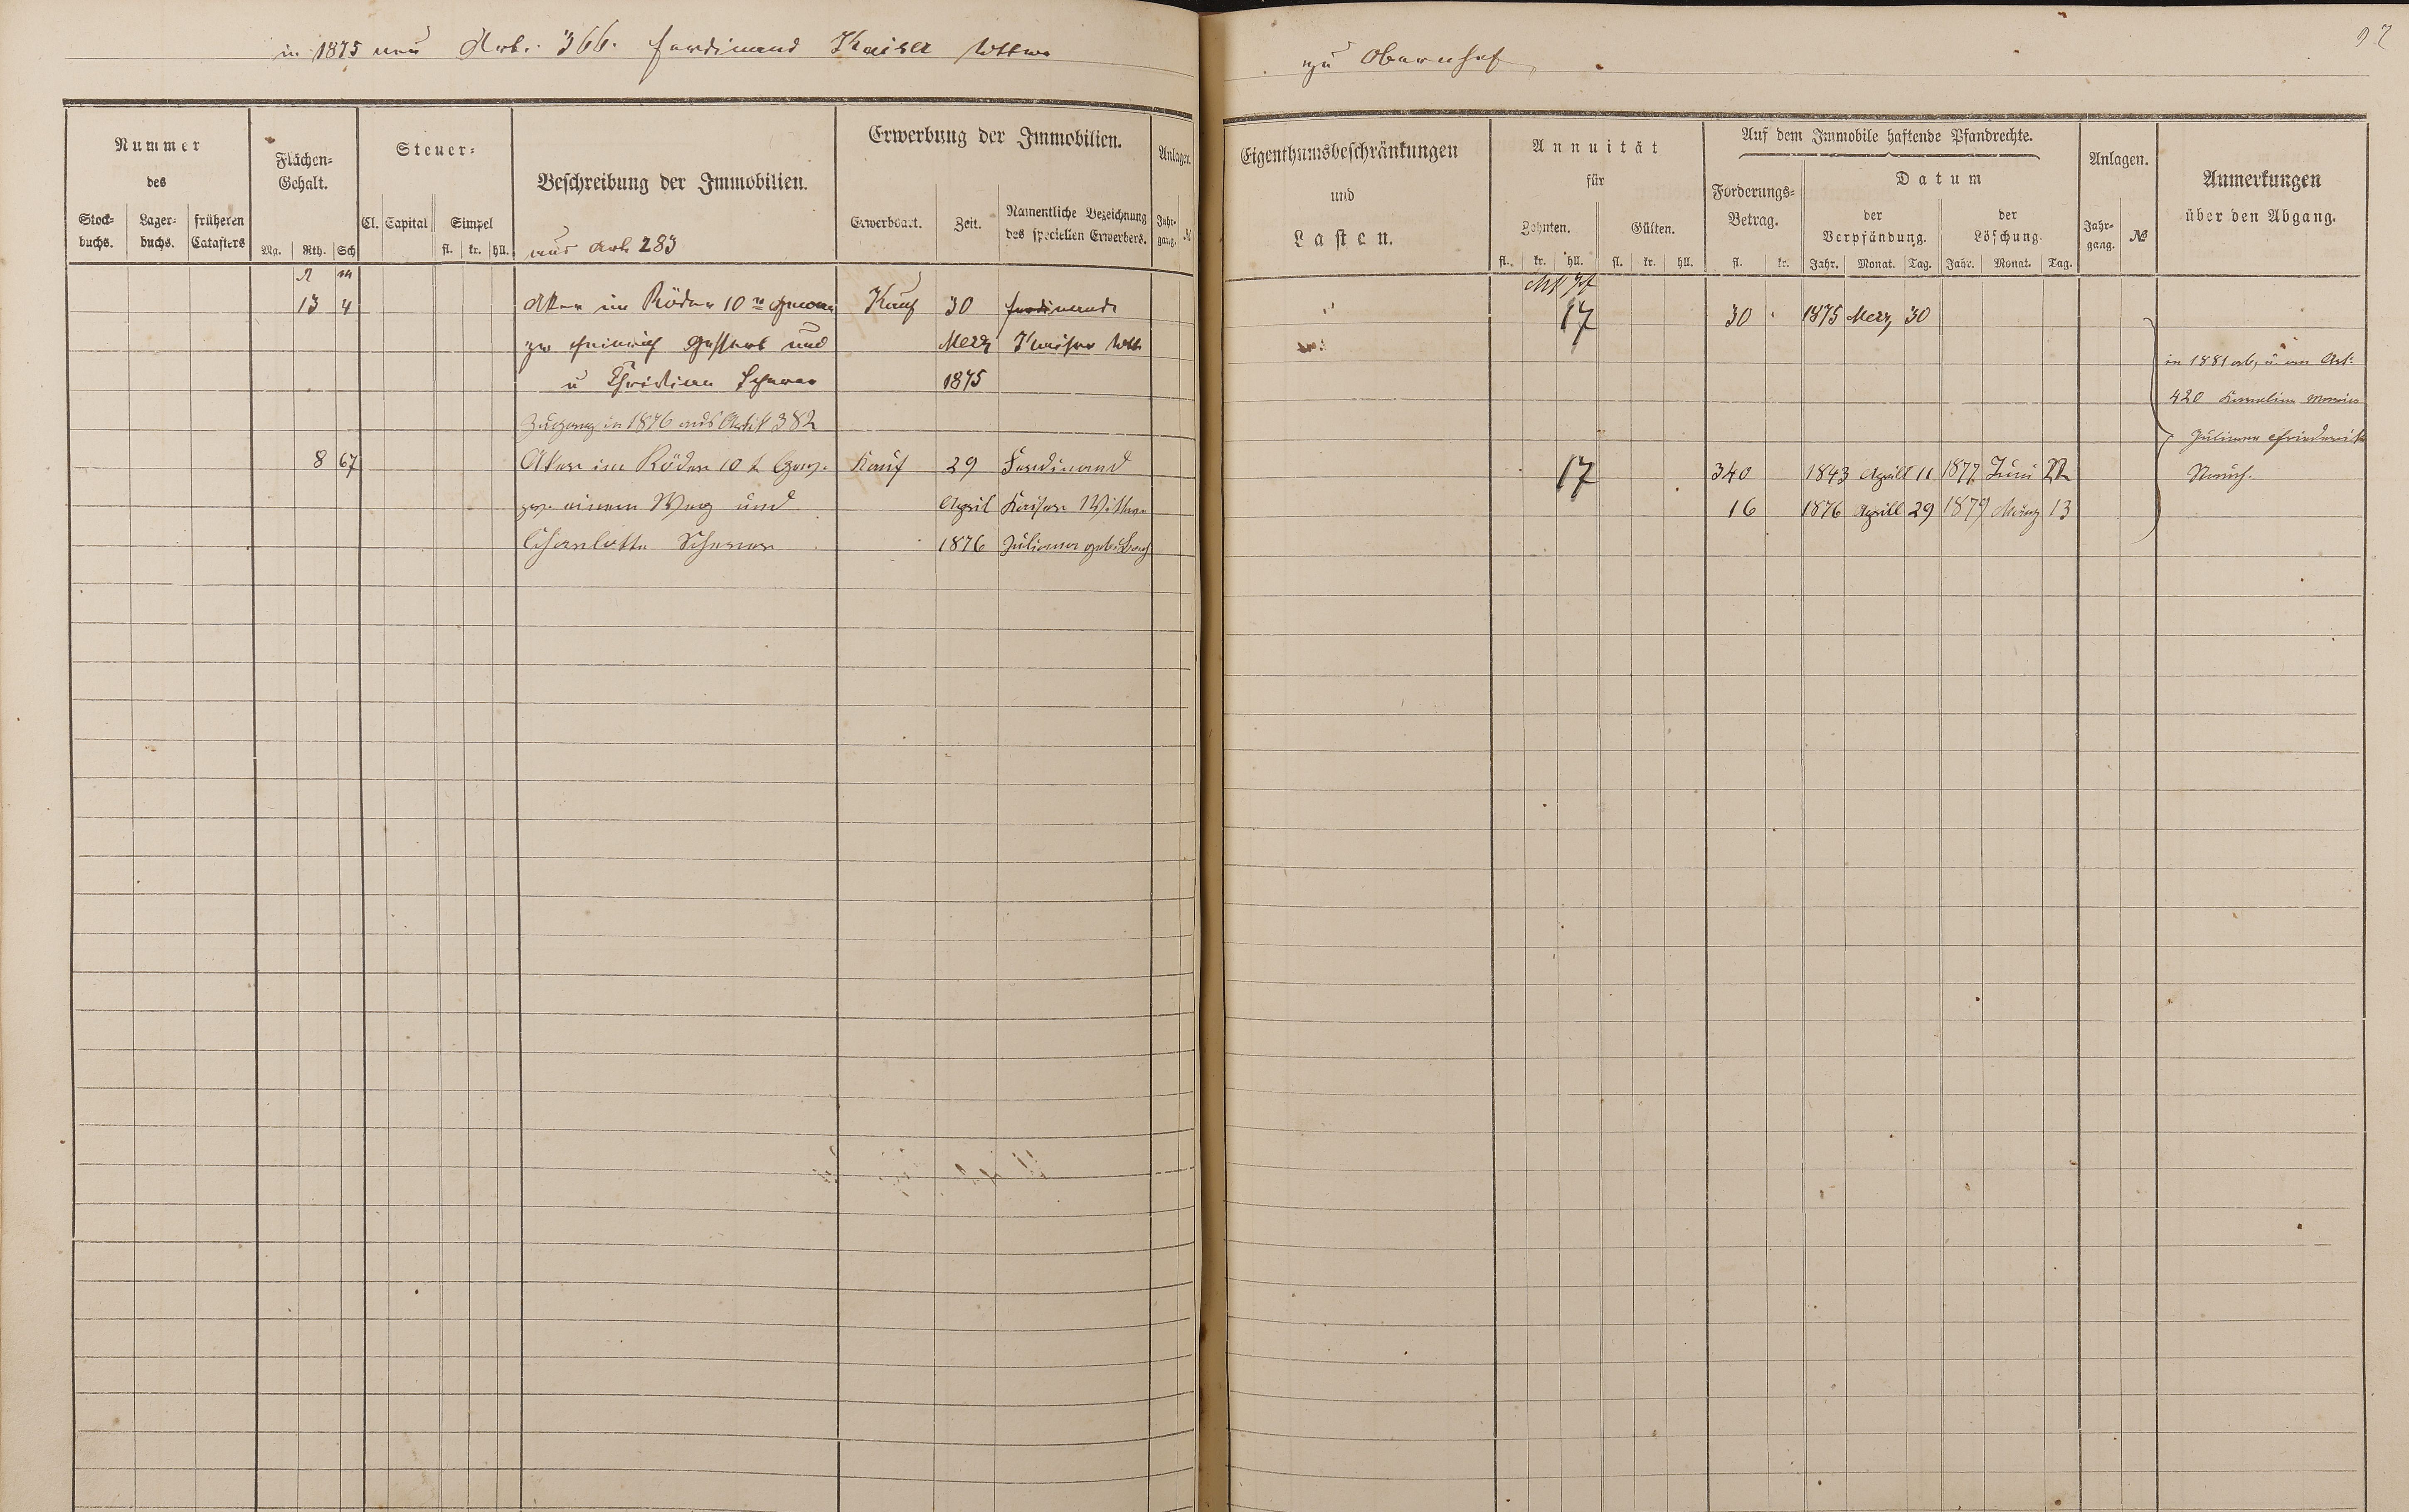 in 1875 neu Artk. 366. Ferdinand Kaiser Wittwe
zu Obernhof
97
Nummer des
Stockbuchs.
Lagerbuchs.
früheren Catasters
Flächen-Gehalt.
Mg. Rth. Sch
Steuer-
Cl. Capital Simpel
fl. kr. hll.
Beschreibung der Immobilien.
Erwerbung der Immobilien.
Erwerbsart. Zeit. Namentliche Bezeichnung des speciellen Erwerbers.
Anlagen.
Jahrgang. №
Eigenthumsbeschränkungen
und
Lasten.
Annuität
für
Zehnten. Gülten.
fl. kr. hll. fl. kr. hll.
Auf dem Immobile haftende Pfandrechte.
Forderungs-Betrag.
fl. kr.
Datum
der Verpfändung. der Löschung.
Jahr. Monat. Tag. Jahr. Monat. Tag.
Anlagen.
Jahrgang. №
Anmerkungen
über den Abgang.
aus Artk 283
13 4 Aker im Röder 10 Kauf 30 Ferdinands 17 30 1875 Merz 30
zw Heinrich und Merz Kaiser Wtt
u Christian Scherer 1875
in 1881 ab, u an Art.
420
Zugang in 1876 aus Artik 382
Juliane Friederike
8 67 Aker im Röder 10 t Gew. Kauf 29 Ferdinand 17 340 1843 Aprill 11 1877 Juni 22
zw. einem Weg und April Kaiser Wittwe 16 1876 Aprill 29 1879 März 13
Charlotte Scherer 1876 Juliana geb.